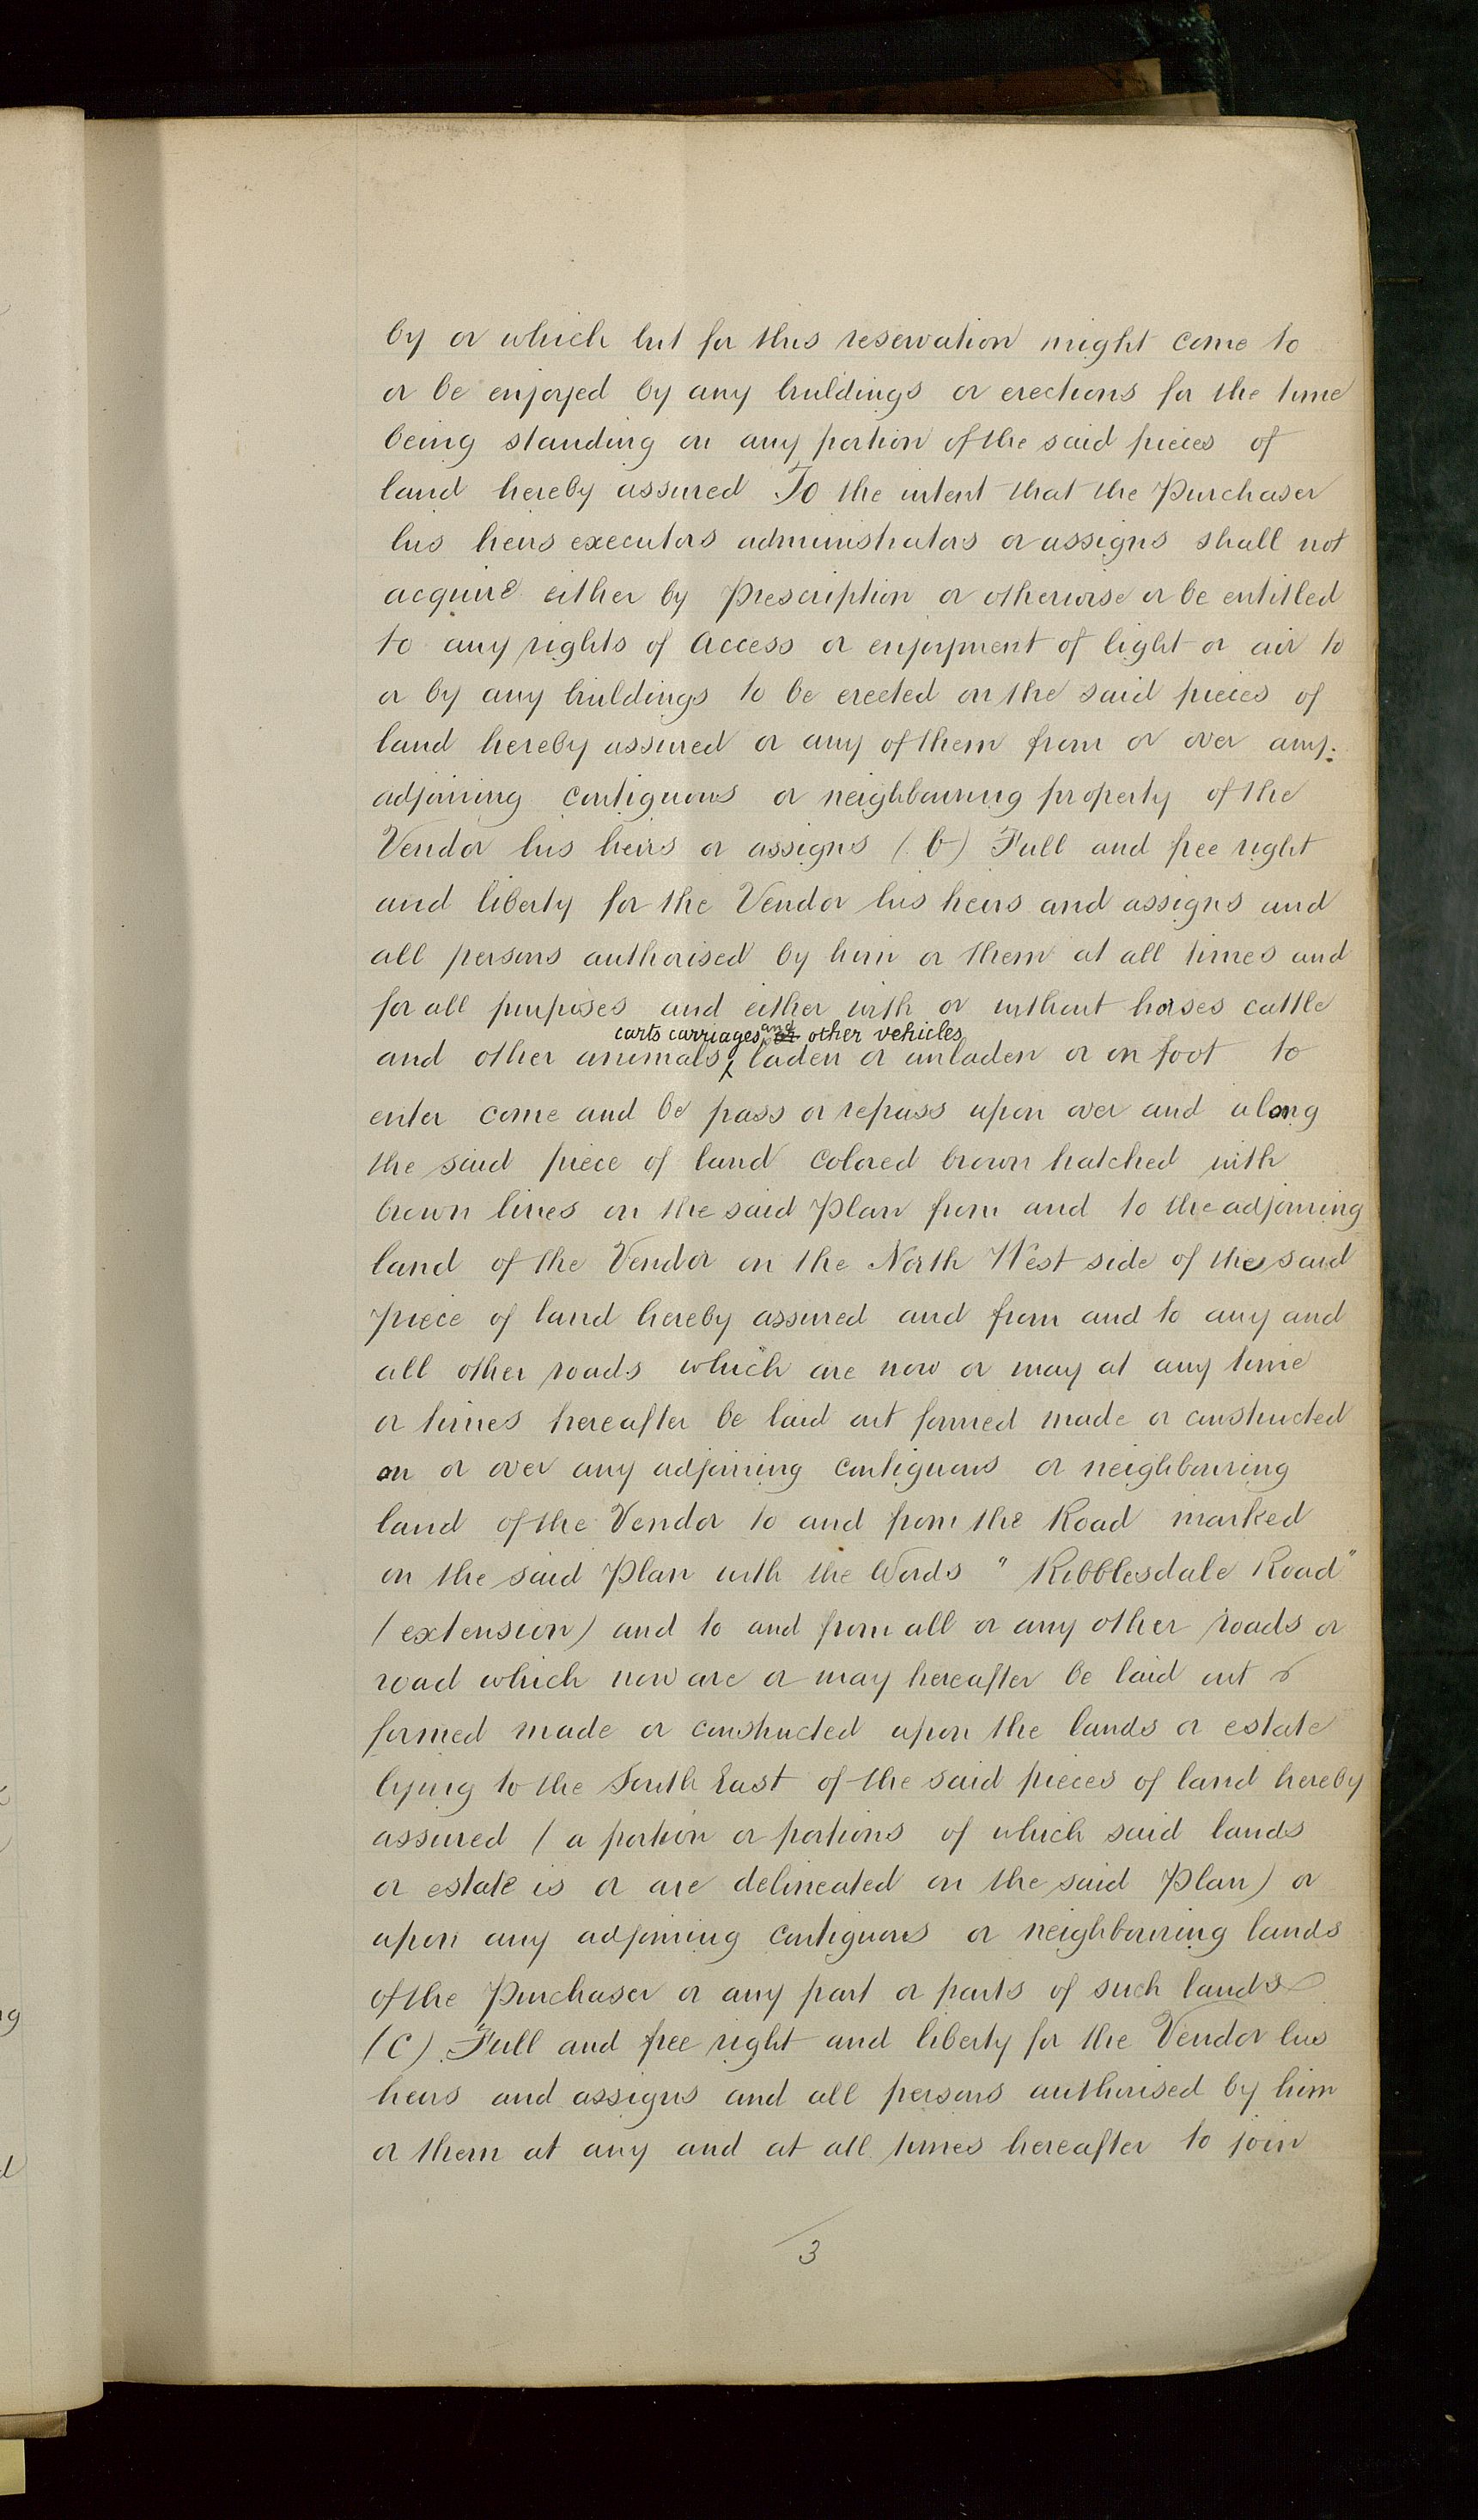 by or which but for this reservation might come to
or be enjoyed by any buildings or erections for the time
being standing on any portion of the said pieces of
land hereby assured To the intent that the Purchaser
his heirs executors administrators or assigns shall not
acquire either by Prescription or otherwise or be entitled
to any rights of access or enjoyment of light or air to
or by any buildings to be erected on the said pieces of
land hereby assured or any of them from or over any
adjoining contiguous or neighbouring property of the
Vendor his heirs or assigns (b) Full and free right
and liberty for the Vendor his heirs and assigns and
all persons authorised by him or them at all times and
for all purposes and either with or without horses cattle
carts carriages and or other vehicles
and other animals laden or unladen or on foot to
enter come and be pass or repass upon over and along
the said piece of land colored brown hatched with
brown lines on the said Plan from and to the adjoining
land of the Vendor on the North West side of the said
piece of land hereby assured and from and to any and
all other roads which are now or may at any time
or times hereafter be laid out formed made or constructed
on or over any adjoining contiguous or neighbouring
land of the Vendor to and from the Road marked
on the said Plan with the Words "Ribblesdale Road"
(extension) and to and from all or any other roads or
road which now are or may hereafter be laid out
formed made or constructed upon the lands or estate
lying to the South East of the said pieces of land hereby
assured (a portion or portions of which said lands
or estate is or are delineated on the said Plan) or
upon any adjoining contiguous or neighbouring lands
of the Purchaser or any part or parts of such lands
(C) Full and free right and liberty for the Vendor his
heirs and assigns and all persons authorised by him
or them at any and at all times hereafter to join
3